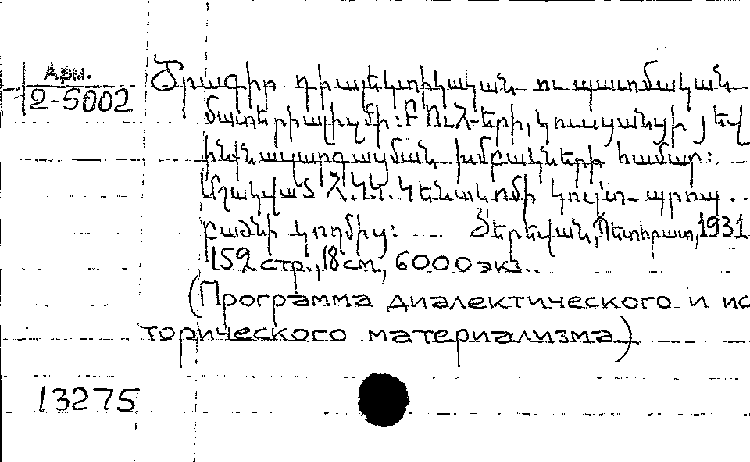 Арм.
2-5002
Ծրագիր դիալեկտիկական ու պատմական
մատերիալիզմի: ԲՈՒՀ-երի, կուսցանցի յեվ
ինքնազարգացման խմբակների համար:
Մշակված Հ.Կ.Կ. Կենտկոմի կուլտ-պրոպ..
բաժնի կողմից: Յերեվան, Պետհրատ, 1931
152 стр., 18 см, 6000 экз..
(Программа диалектического и ис
торического материализма)
13275